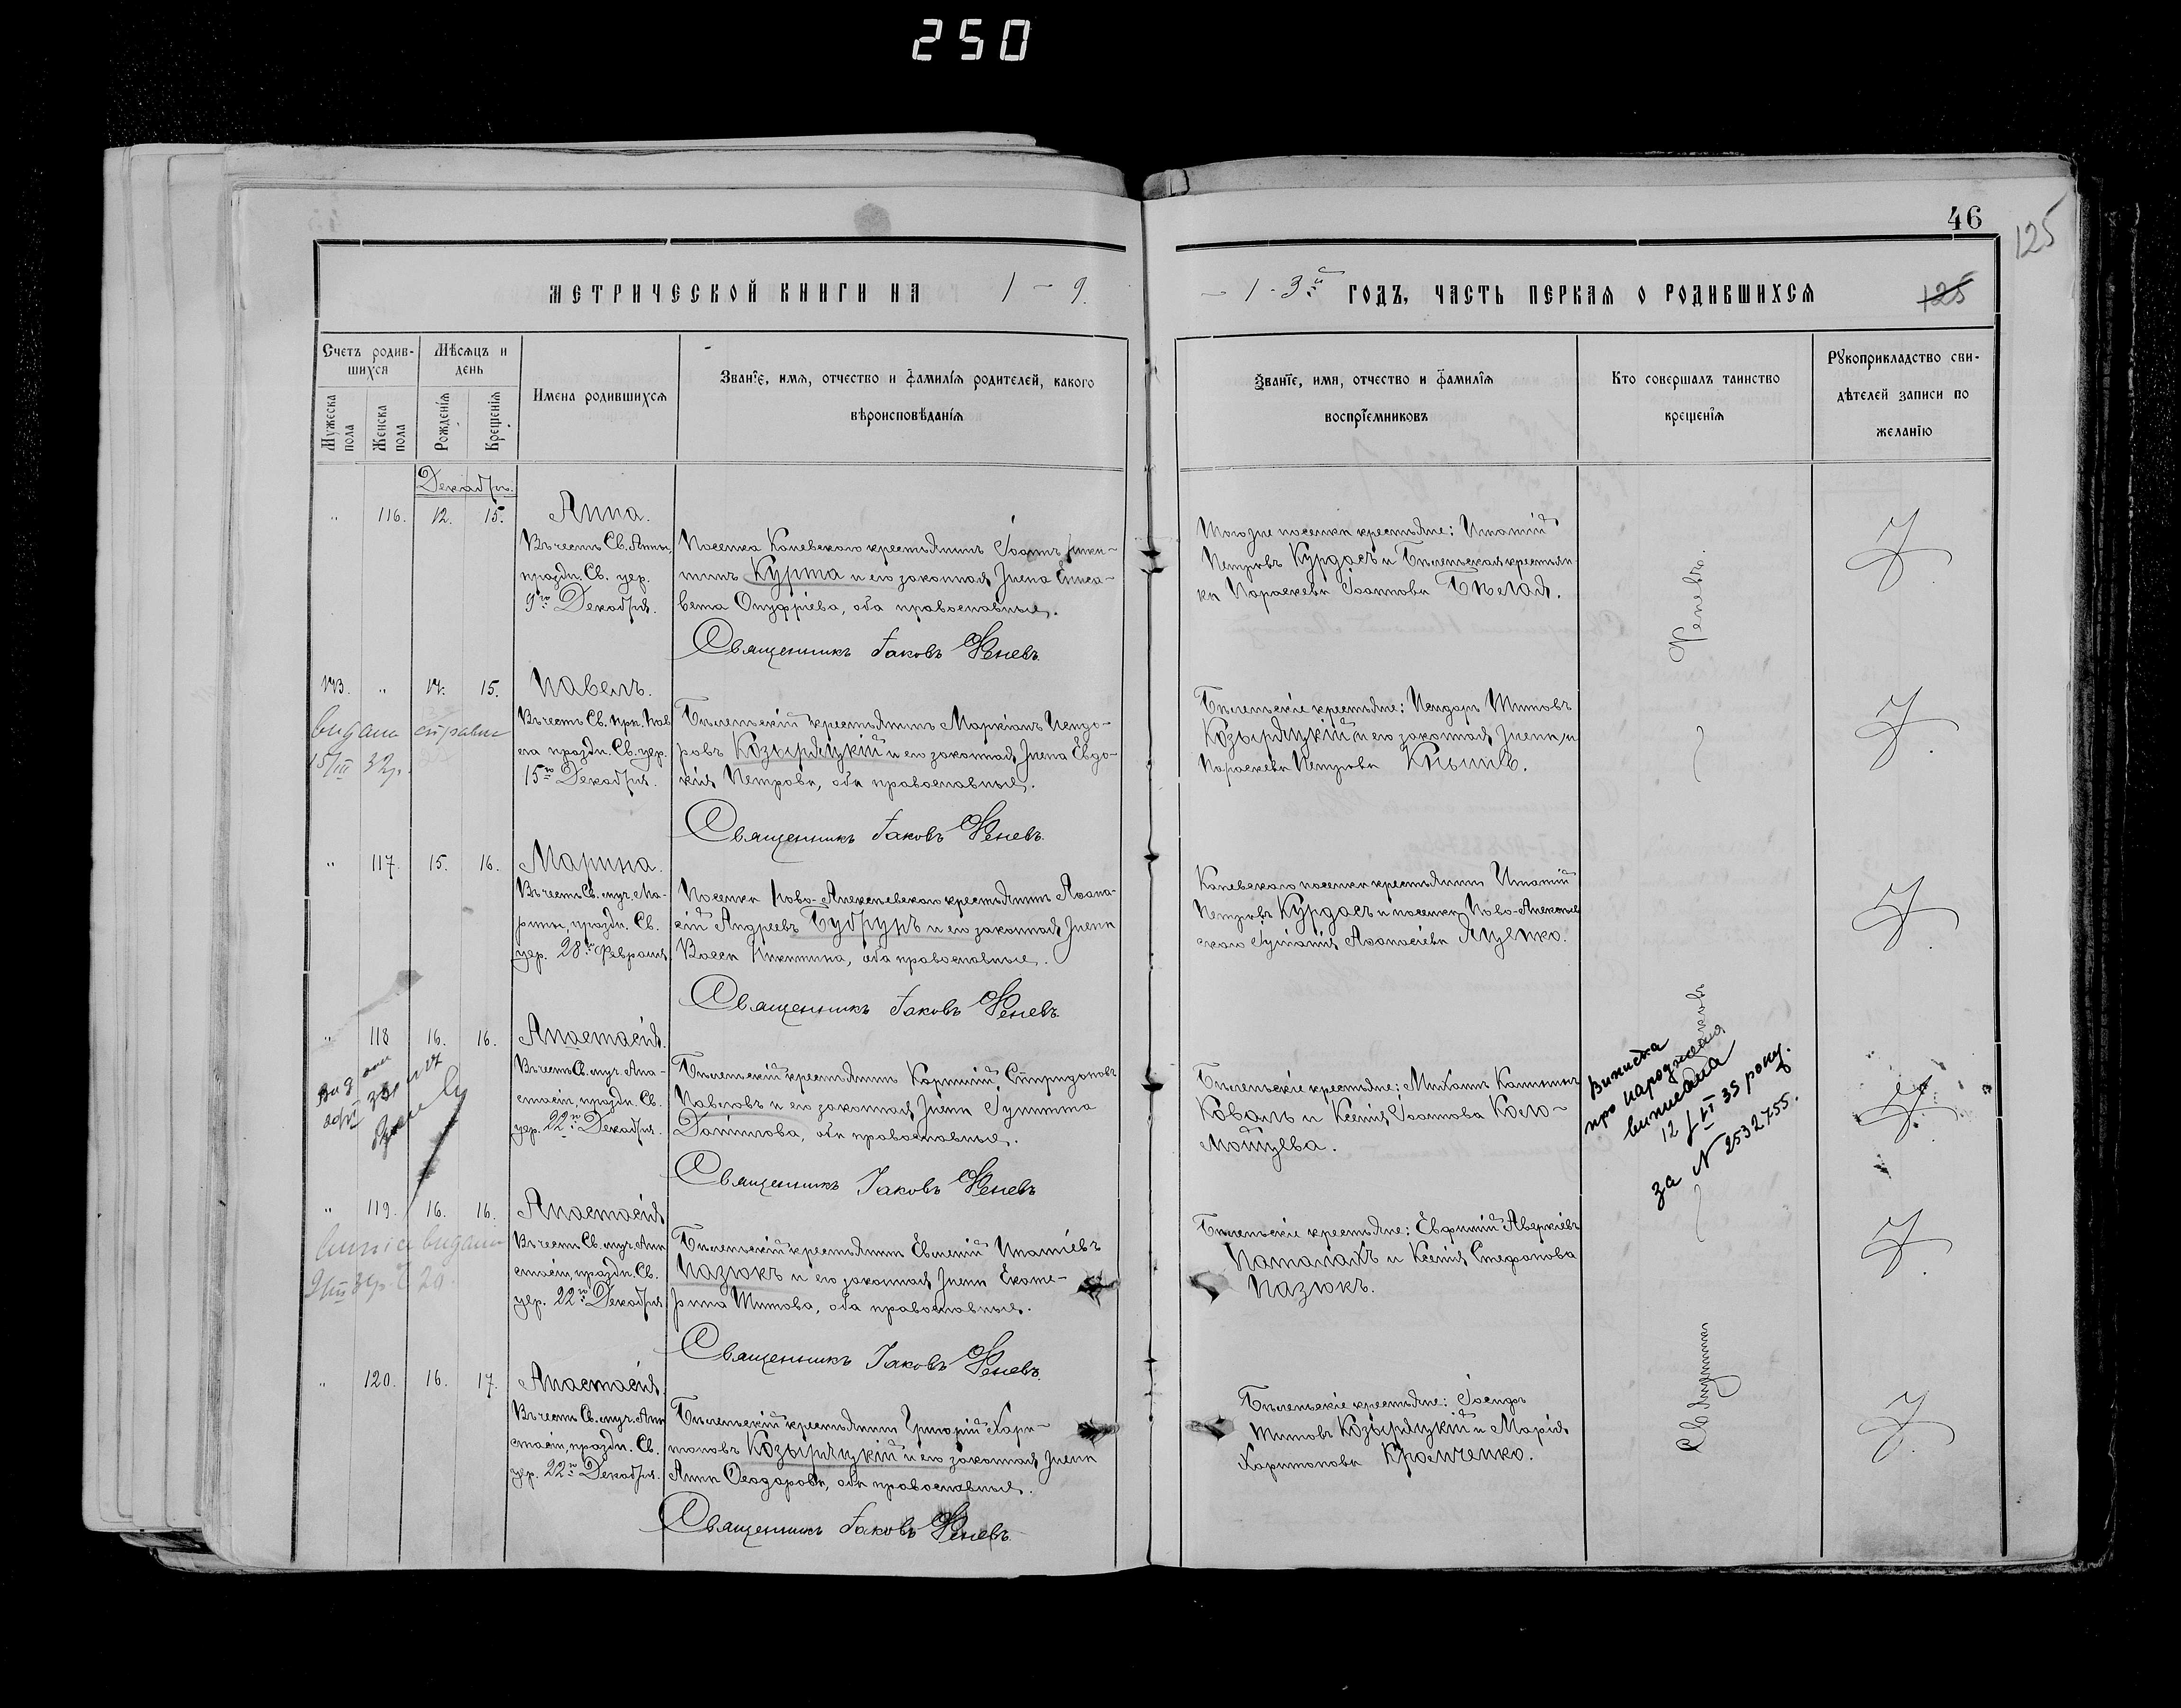 250
46
125
МЕТРИЧЕСКОЙ КНИГИ НА 1 - 9.
- 1 - 3й ГОДЪ, ЧАСТЬ ПЕРВАЯ О РОДИВШИХСЯ
125
Счетъ родив-
шихся
Мужеска пола
Женска пола
Мѣсяцъ и
день
Рожденія
Крещенія
Имена родившихся
Званіе, имя, отчество и фамилія родителей, какого
вѣроисповѣданія
Званіе, имя, отчество и фамилія
воспріемниковъ
Кто совершалъ таинство
крещенія
Рукоприкладство сви-
дѣтелей записи по
желанію
Декабрь.
" 116. 12. 15. Анна.
Въ честь Св. Анны,
праздн. Св. цер.
9го Декабря.
Поселка Каневскаго крестьянинъ Іоаннъ Ники-
тинъ Курта и его законная жена Елиса-
вета Онуфріева, оба православные.
Священникъ Іаковъ Феневъ.
Того же поселка крестьяне: Игнатій
Петровъ Курдасъ и Бѣленькская крестьян
ка Параскева Іоаннова Бѣлая.
Феневъ.
113. " 12. 15. Павелъ.
Въ честь Св. прп. Пав
ла праздн. Св. цер.
15го Декабря.
Бѣленькскій крестьянинъ Маркіанъ Исидо-
ровъ Козыряцкій и его законная жена Евдо-
кія Петрова, оба православные.
Священникъ Іаковъ Феневъ.
Бѣленькскіе крестьяне: Исидоръ Титовъ
Козыряцкій и его законная жена
Параскева Петрова
видана справка
15/III 32р.
" 117. 15. 16. Марина.
Въ честь Св. муч. Ма-
рины, праздн. Св.
цер. 28го Февраля.
Поселка Ново-Алексѣевскаго крестьянинъ Аѳана-
сій Андреевъ и его законная жена
Васса Никитина, оба православные.
Священникъ Іаковъ Феневъ.
Каневскаго поселка крестьянинъ Игнатій
Петровъ Курдасъ и поселка Ново-Алексѣев
скаго Іуліанія Аѳанасіева Яценко.
" 118 16. 16. Анастасія.
Въ честь Св. муч. Ана-
стасіи, праздн. Св.
цер. 22го Декабря.
Бѣленькскій крестьянинъ Корнилій Спиридоновъ
Павловъ и его законная жена Іулитта
Даніилова, оба православные.
Священникъ Іаковъ Феневъ
Бѣленькскіе крестьяне: Михаилъ
Коваль и Ксенія Іоаннова Коло-
Мойцева.
Виписка
про народження
виписана
12/VI 35 року.
за N 2532755.
" 119. 16. 16. Анастасія
Въ честь Св. муч. Ана
стасіи, праздн. Св.
цер. 22го Декабря
Бѣленькскій крестьянинъ Евменій Игнатіевъ
Назюкъ и его законная жена Екате-
рина Титова, оба православные.
Священникъ Іаковъ Феневъ.
Бѣленькскіе крестьяне: Евфимій Аверкіевъ
Паталахъ и Ксенія Стефанова
Назюкъ.
" 120. 16. 17. Анастасія.
Въ честь Св. муч. Ана
стасіи, праздн. Св.
цер. 22го Декабря.
Бѣленькскій крестьянинъ Григорій Хари-
тоновъ Козыряцкій и его законная жена
Анна Ѳеодорова, оба православные.
Священникъ Іаковъ Феневъ.
Бѣленькскіе крестьяне: Іосифъ
Титовъ Козыряцкій и Марія
Харитонова Кравченко.